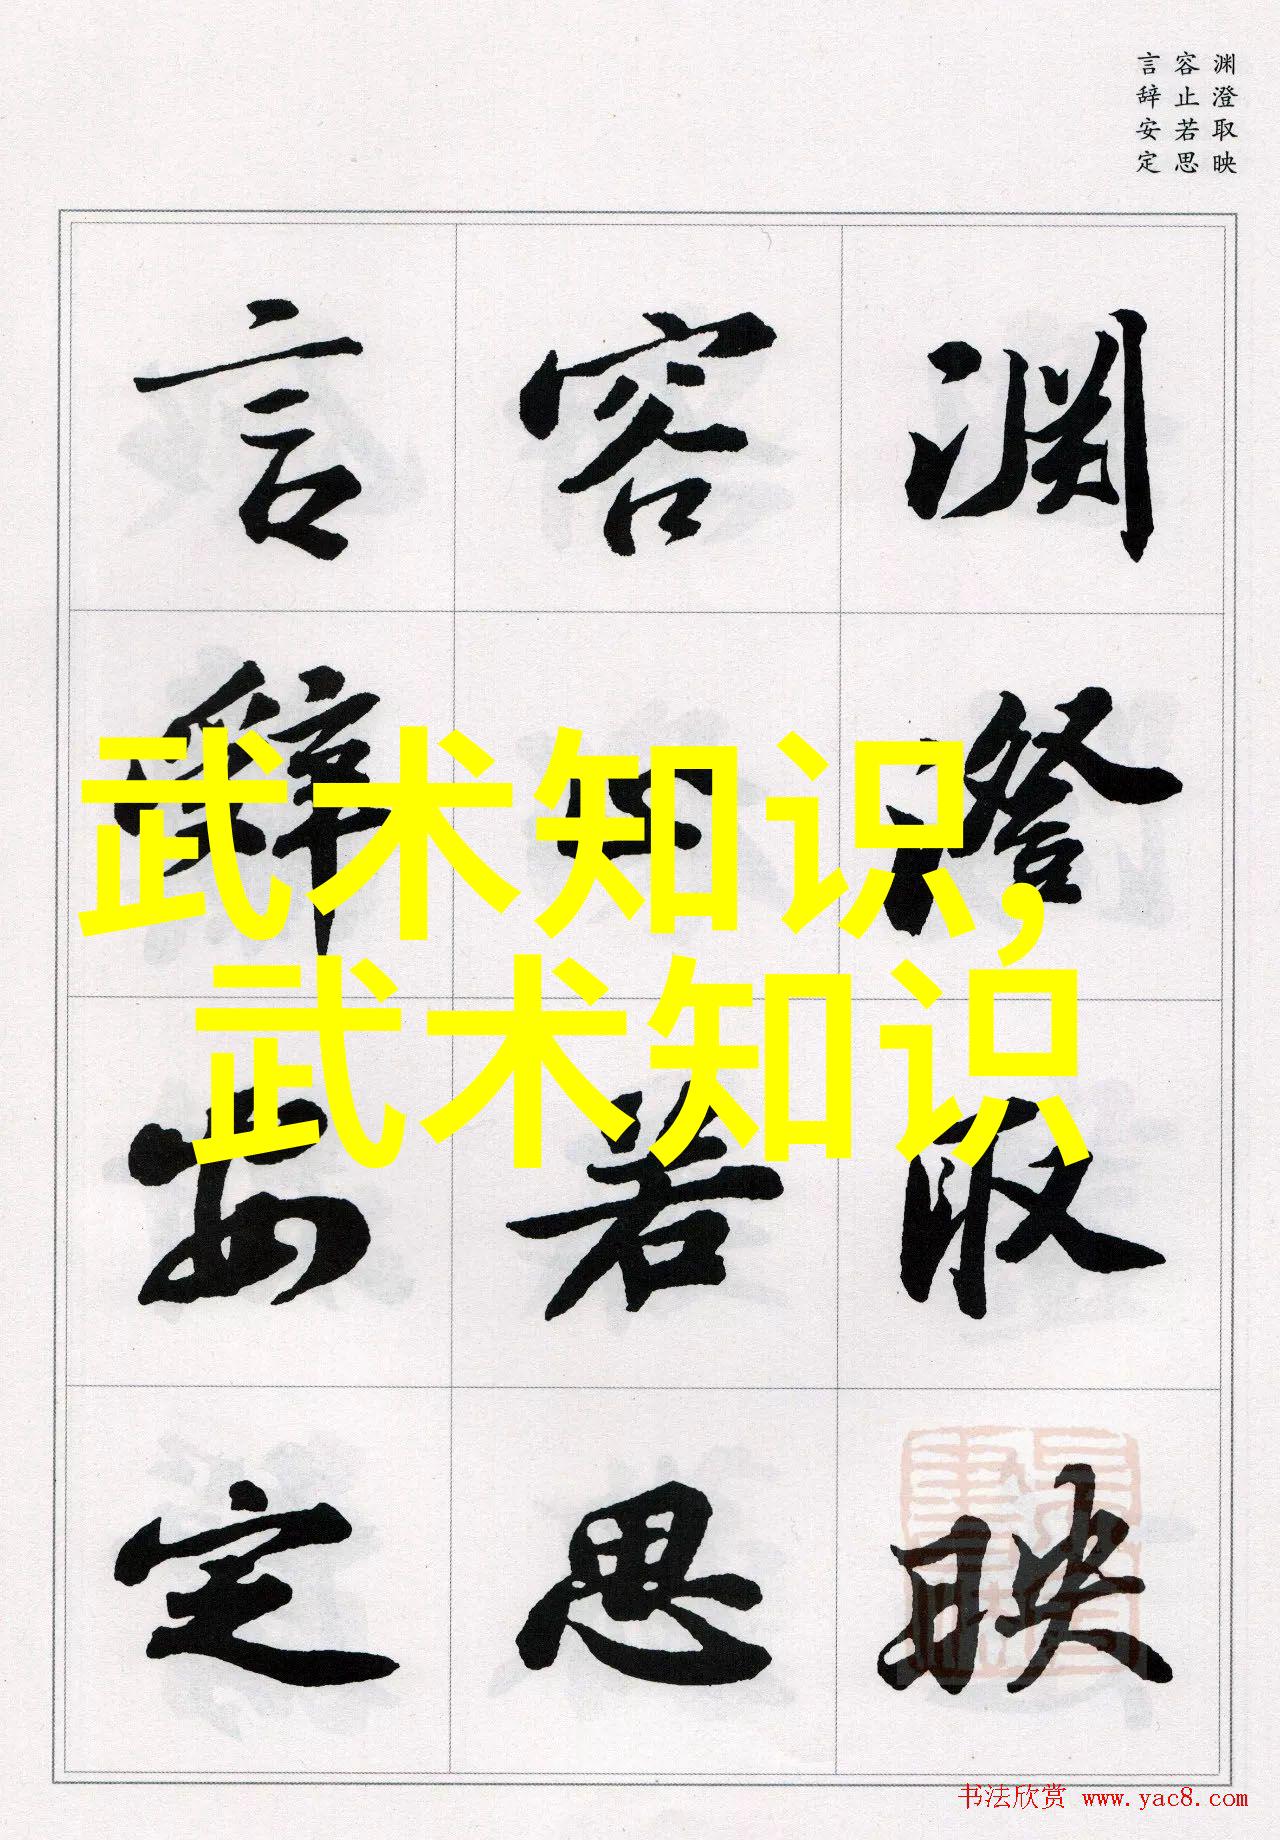 渊澄取映
容止若思
言辞安定
渊澄取映
容止若思
言辞安定
武术知识,
武术知识
书法欣赏 www.yac8.com